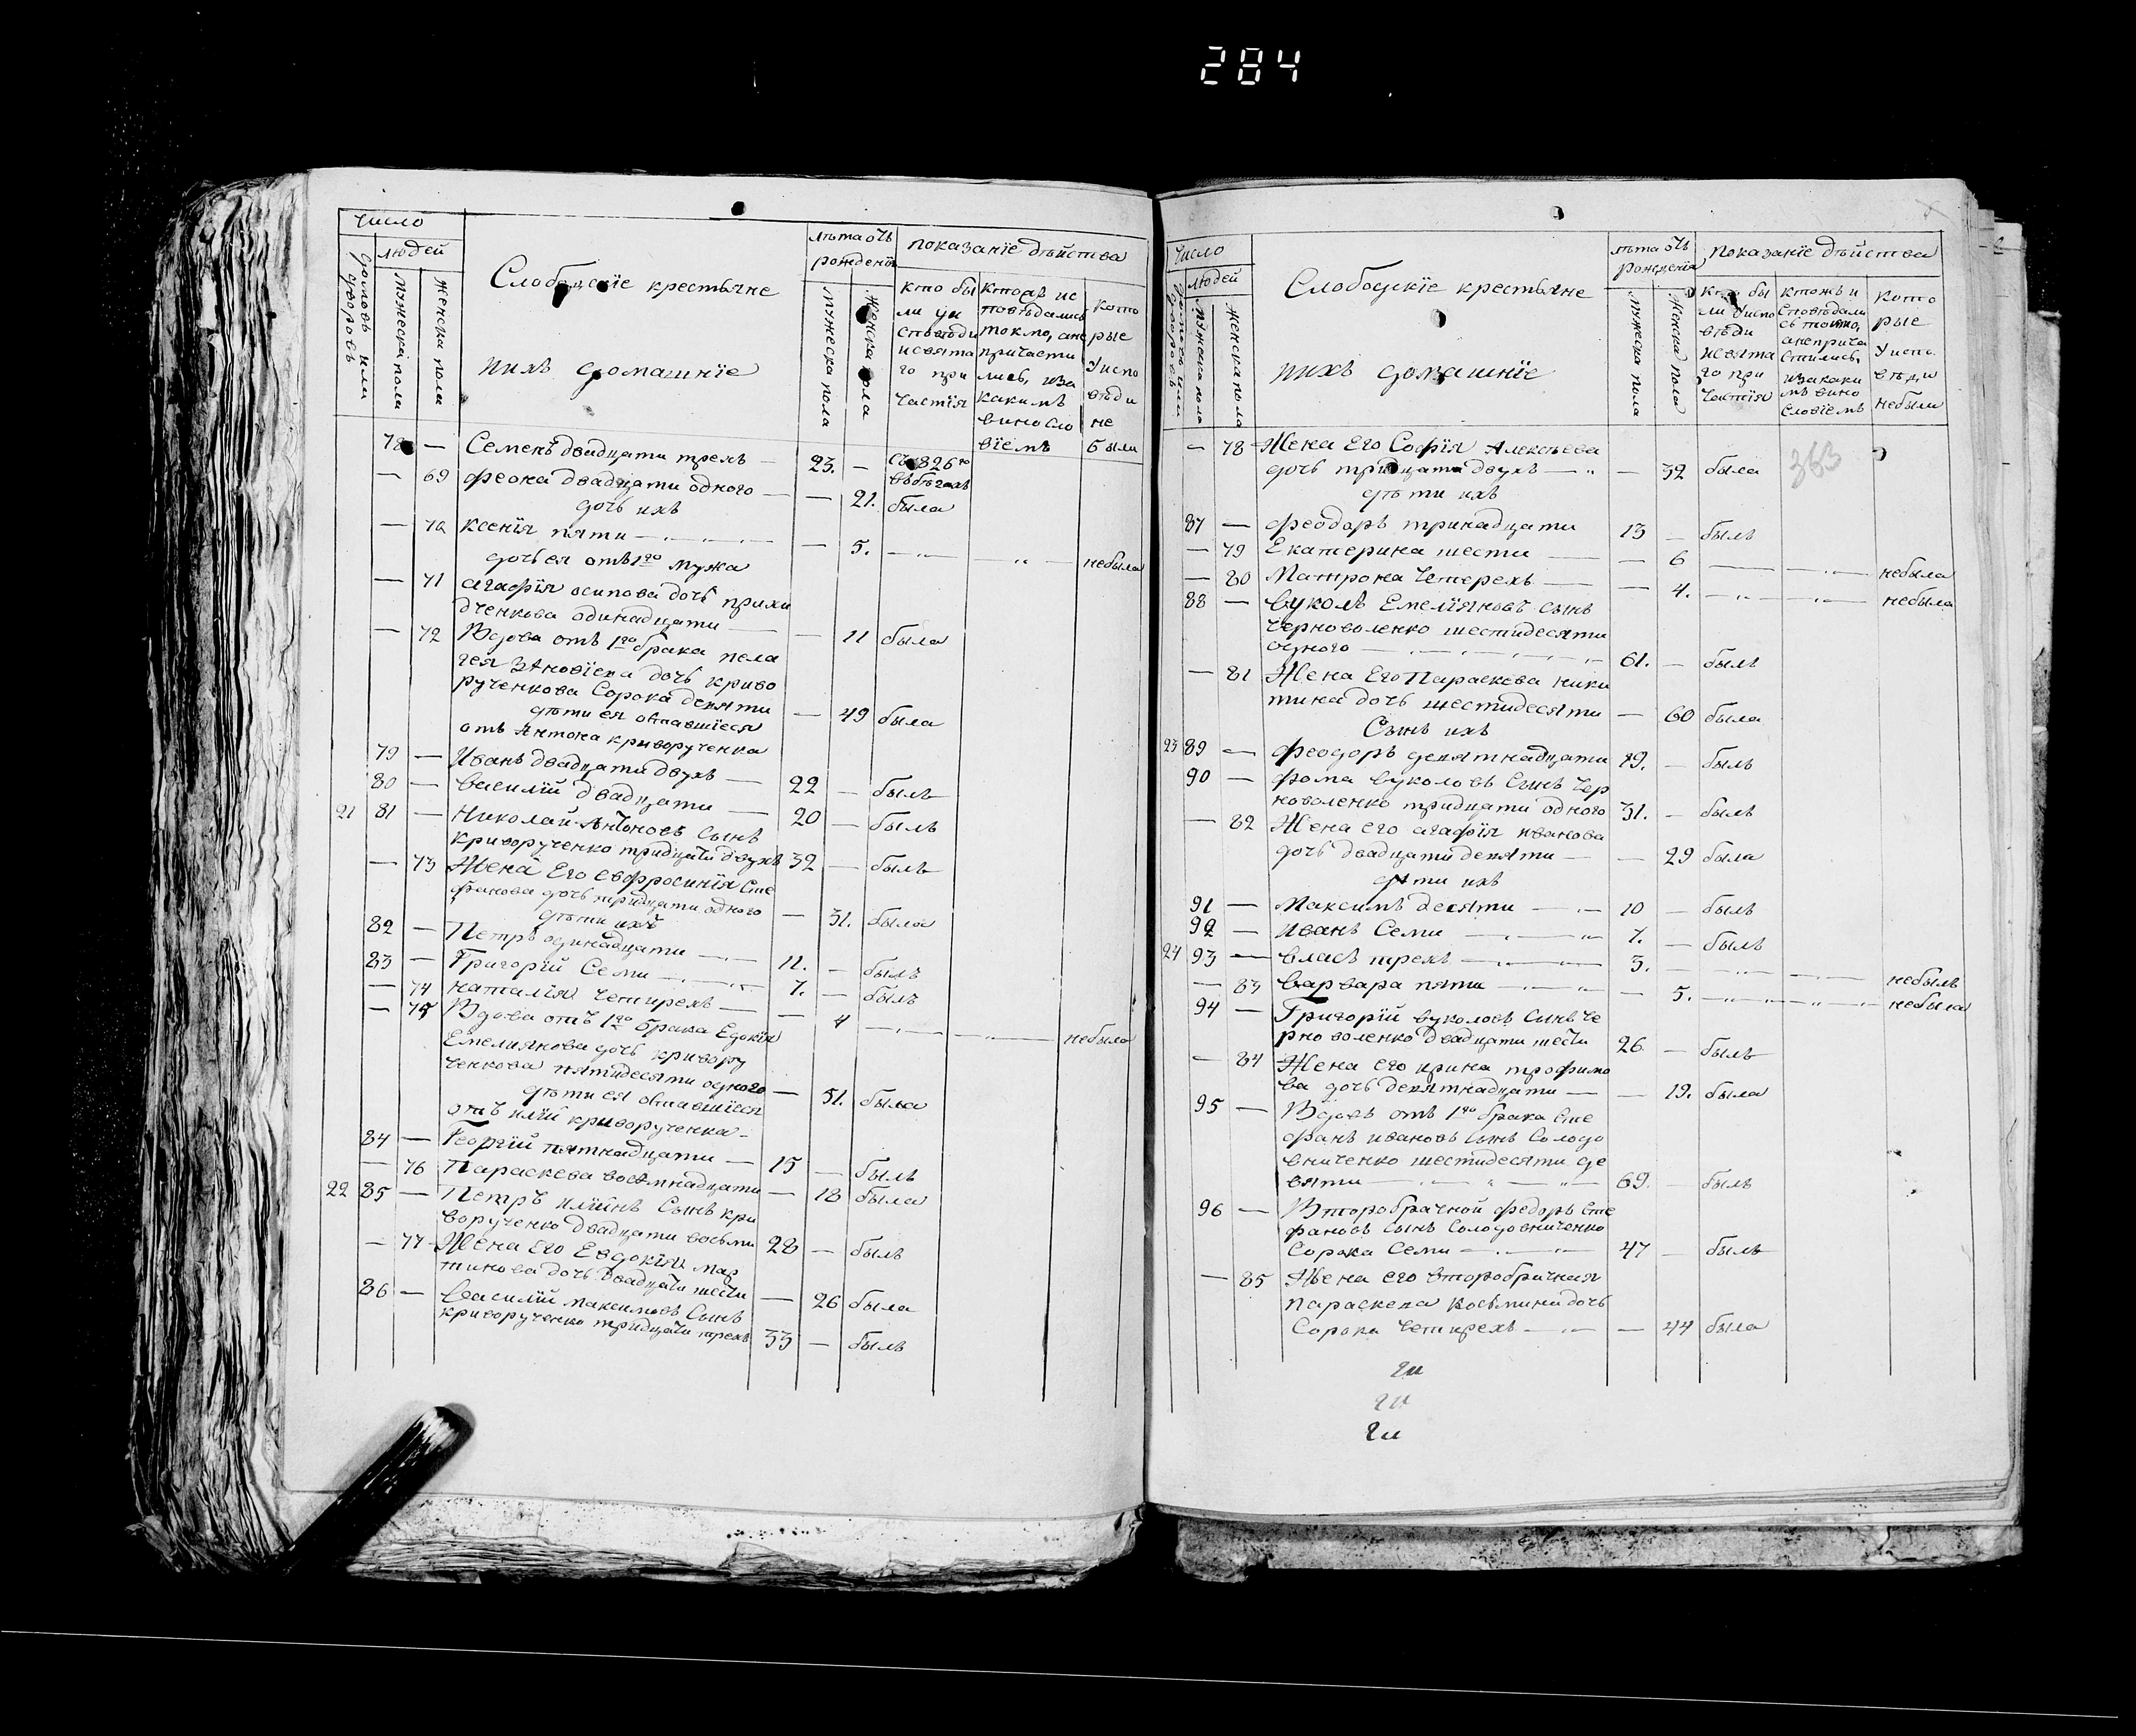 284
число
людей
домовъ или дворовъ
мужеска пола
женска пола
Слободскіе крестьяне
ихъ домашніе
лѣта отъ
рожденія
мужеска пола
женска пола
показаніе дѣйства
кто бы
ли у и
сповѣди
и свята
го при
частія
ктожъ ис
повѣдались
токмо, а не
причасти
лись, и за
какимъ
виносло
віемъ
кото
рые
у испо
вѣди
не
были
78 — Семенъ двадцати трехъ — 23. — съ 826го
въ бѣгахъ
— 69 Феона двадцати одного — — 21. была
дочь ихъ
— 70 Ксенія пяти — — 5. — небыла
дочь ея отъ 1го мужа
— 71 Агафія осипова дочь прихи
дченкова одинадцати — — 11 была
— 72 Вдова отъ 1го брака пела
гея Зановіева дочь криво
рученкова Сорока девяти — 49 была
дѣти ея оставшіеся
отъ Антона криворученка
79 — Иванъ двадцати двухъ — 22 — былъ
80 — Василій двадцати — 20 — былъ
21 81 — Николай Антоновъ Сынъ
криворученко тридцати двухъ 32 — былъ
— 73 Жена Его Евфросинія Сте
фанова дочь тридцати одного — 31. была
дѣти ихъ
82 — Петръ одинадцати — 11. — былъ
83 — Григорій Семи — 7. — былъ
— 74 Наталія четирехъ — — 4 — небыла
— 75 Вдова отъ 1го брака Евдокія
Емелиянова дочь кривору
ченкова пятидесяти одного — 51. была
дѣти ея оставшіеся
отъ иліи криворученка
84 — Георгій пятнадцати — 15 — былъ
— 76 Параскева восемнадцати — 18 была
22 85 — Петръ иліинъ Сынъ кри
ворученко двадцати восьми 28 — былъ
— 77 Жена Его Евдокія мар
тинова дочь двадцати шести — 26 была
86 — Василій максимовъ Сынъ
криворученко тридцати трехъ 33 — былъ
число
людей
домовъ или дворовъ
мужеска пола
женска пола
Слободскіе крестьяне
ихъ домашніе
лѣта отъ
рожденія
мужеска пола
женска пола
показаніе дѣйства
кто бы
ли у испо
вѣди
и свята
го при
частія
ктожъ и
сповѣдали
сь токмо,
а неприча
стились,
и за каки
мъ вино
словіемъ
кото
рые
у испо
вѣди
небыли
— 78 Жена Его Софія Алексѣева
дочь тридцати двухъ — — 32 была
363
дѣти ихъ
87 — Феодоръ тринадцати 13 — былъ
— 79 Екатерина шести — — 6 — небыла
— 80 Матрона четерехъ — — 4. — небыла
88 — Вуколъ Емеліяновъ Сынъ
Черноволенко шестидесяти
одного — 61. — былъ
— 81 Жена Его Параскева ники
тина дочь шестидесяти — 60 была
Сынъ ихъ
23 89 — Феодоръ девятнадцати 19. — былъ
90 — Фома вуколовъ Сынъ чер
новоленко тридцати одного 31. — былъ
— 82 Жена его агафія иванова
дочь двадцати девяти — — 29 была
дѣти ихъ
91 — Максимъ десяти — 10 — былъ
92 — Иванъ Семи — 7. — былъ
24 93 — Власъ трехъ — 3. — небылъ
— 83 Варвара пяти — — 5. — небыла
94 — Григорій вуколовъ Сынъ че
рноволенко двадцати шести 26. — былъ
— 84 Жена его ирина трофимо
ва дочь девятнадцати — — 19. была
95 — Вдовъ отъ 1го брака Сте
фанъ ивановъ Сынъ Солодо
вниченко шестидесяти де
вяти — 69. — былъ
96 — Второбрачной федоръ Сте
фановъ Сынъ Солодовниченко
Сорока Семи — 47 — былъ
— 85 Жена его второбрачная
параскева косьмина дочь
Сорока четирехъ — — 44 была